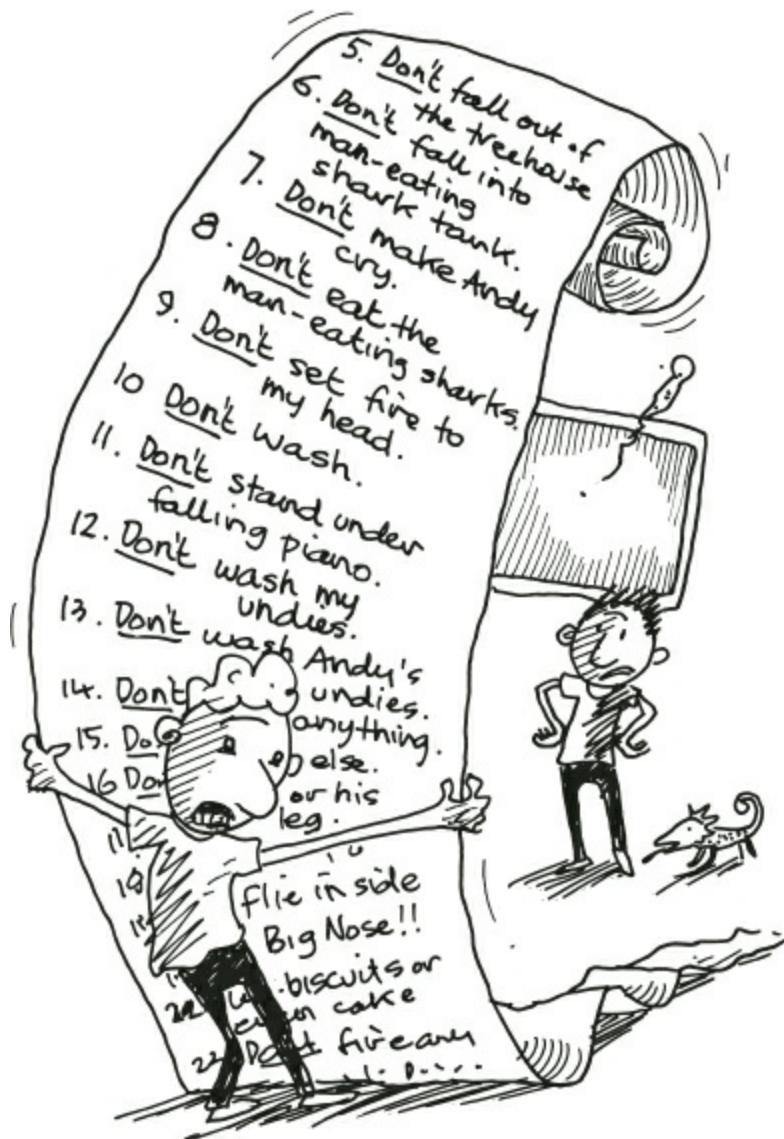 5. Don't fall out of
the treehouse
6. Don't fall into
man-eating
shark tank.
7. Don't make Andy
cry.
8. Don't eat the
man-eating sharks.
9. Don't set fire to
my head.
10 Don't wash.
11. Don't stand under
falling piano.
12. Don't wash my
undies.
13. Don't wash Andy's
undies.
14. Don't
anything.
15. Do
else.
16 Don
or his
leg.
18
flie in side
Big Nose!!
biscuits or
cake
22 Don't fire any